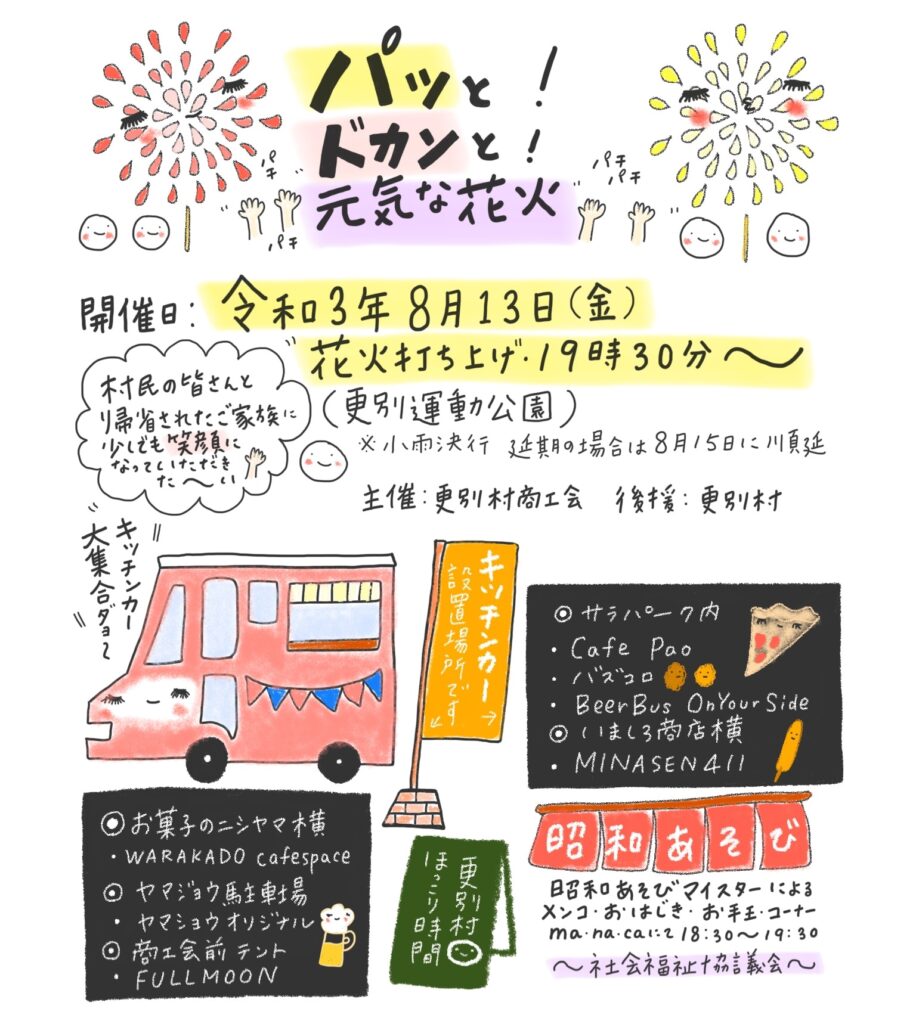 パッと!
ドカンと!
元気な花火
パチ
パチ
パチ
パチ
開催日: 令和3年8月13日(金)
花火打ち上げ・19時30分〜
(更別運動公園)
※小雨決行 延期の場合は8月15日に順延
主催:更別村商工会 後援:更別村
村民の皆さんと
帰省されたご家族に
少しでも笑顔に
なっていただき
た〜い
キッチンカー
大集合ダョ〜
キッチンカー
設置場所です
◎サラパーク内
・Cafe Pao
・バズコロ
・BeerBus OnYourSide
◎いましろ商店横
・MINASEN411
◎お菓子のニシヤマ横
・WARAKADO cafespace
◎ヤマジョウ駐車場
・ヤマショウオリジナル
◎商工会前テント
・FULLMOON
更別村
ほっこり時間
昭和あそび
昭和あそびマイスターによる
メンコ・おはじき・お手玉・コーナー
ma・na・caにて18:30〜19:30
〜社会福祉協議会〜